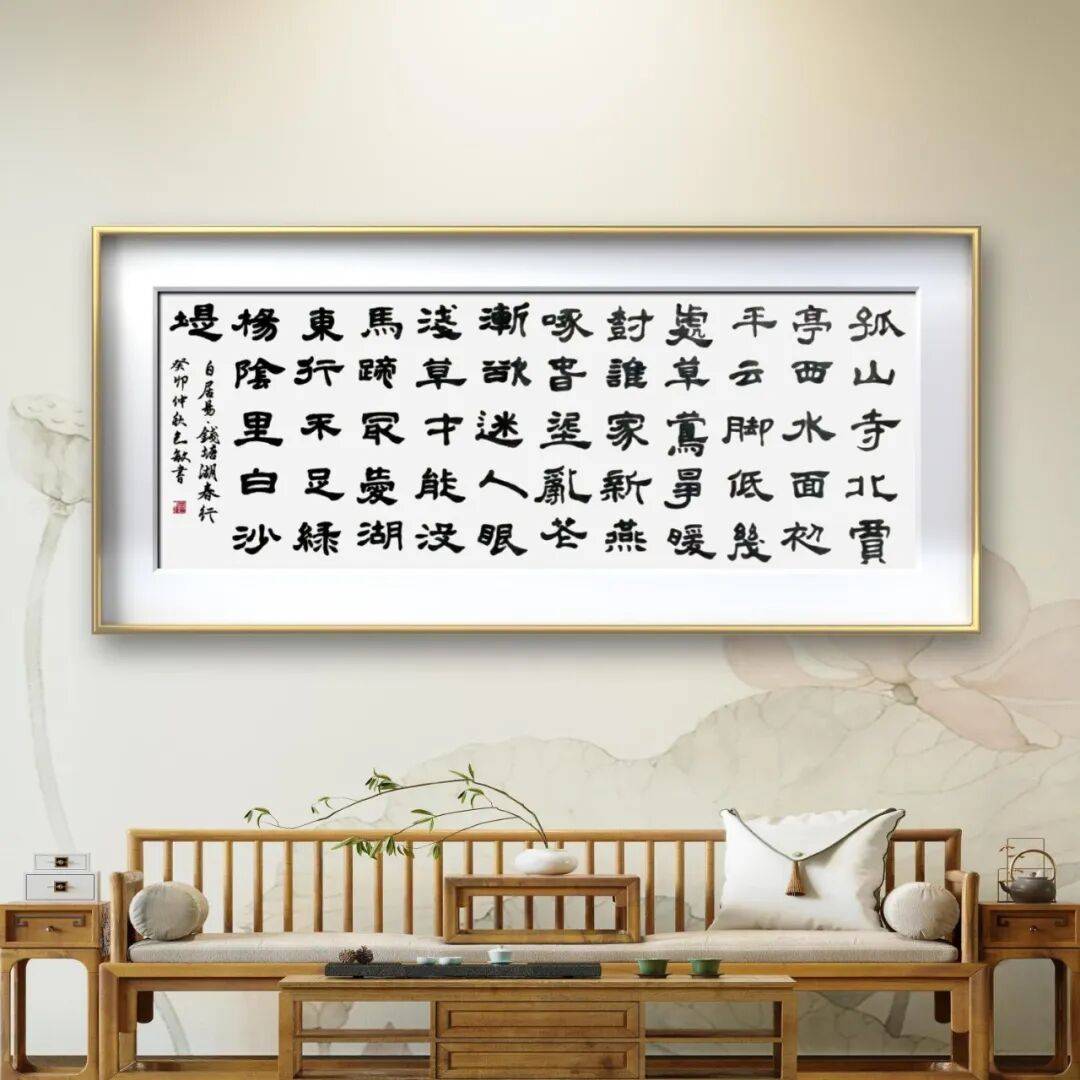 孤山寺北賈
亭西水面初
平云脚低幾
處草鶯爭暖
尌誰家新燕
啄春埿亂花
漸欲迷人眼
淺草才能没
馬蹄冣愛湖
東行不足綠
楊陰里白沙
堤
白居易·錢塘湖春行
癸卯仲秋敏書